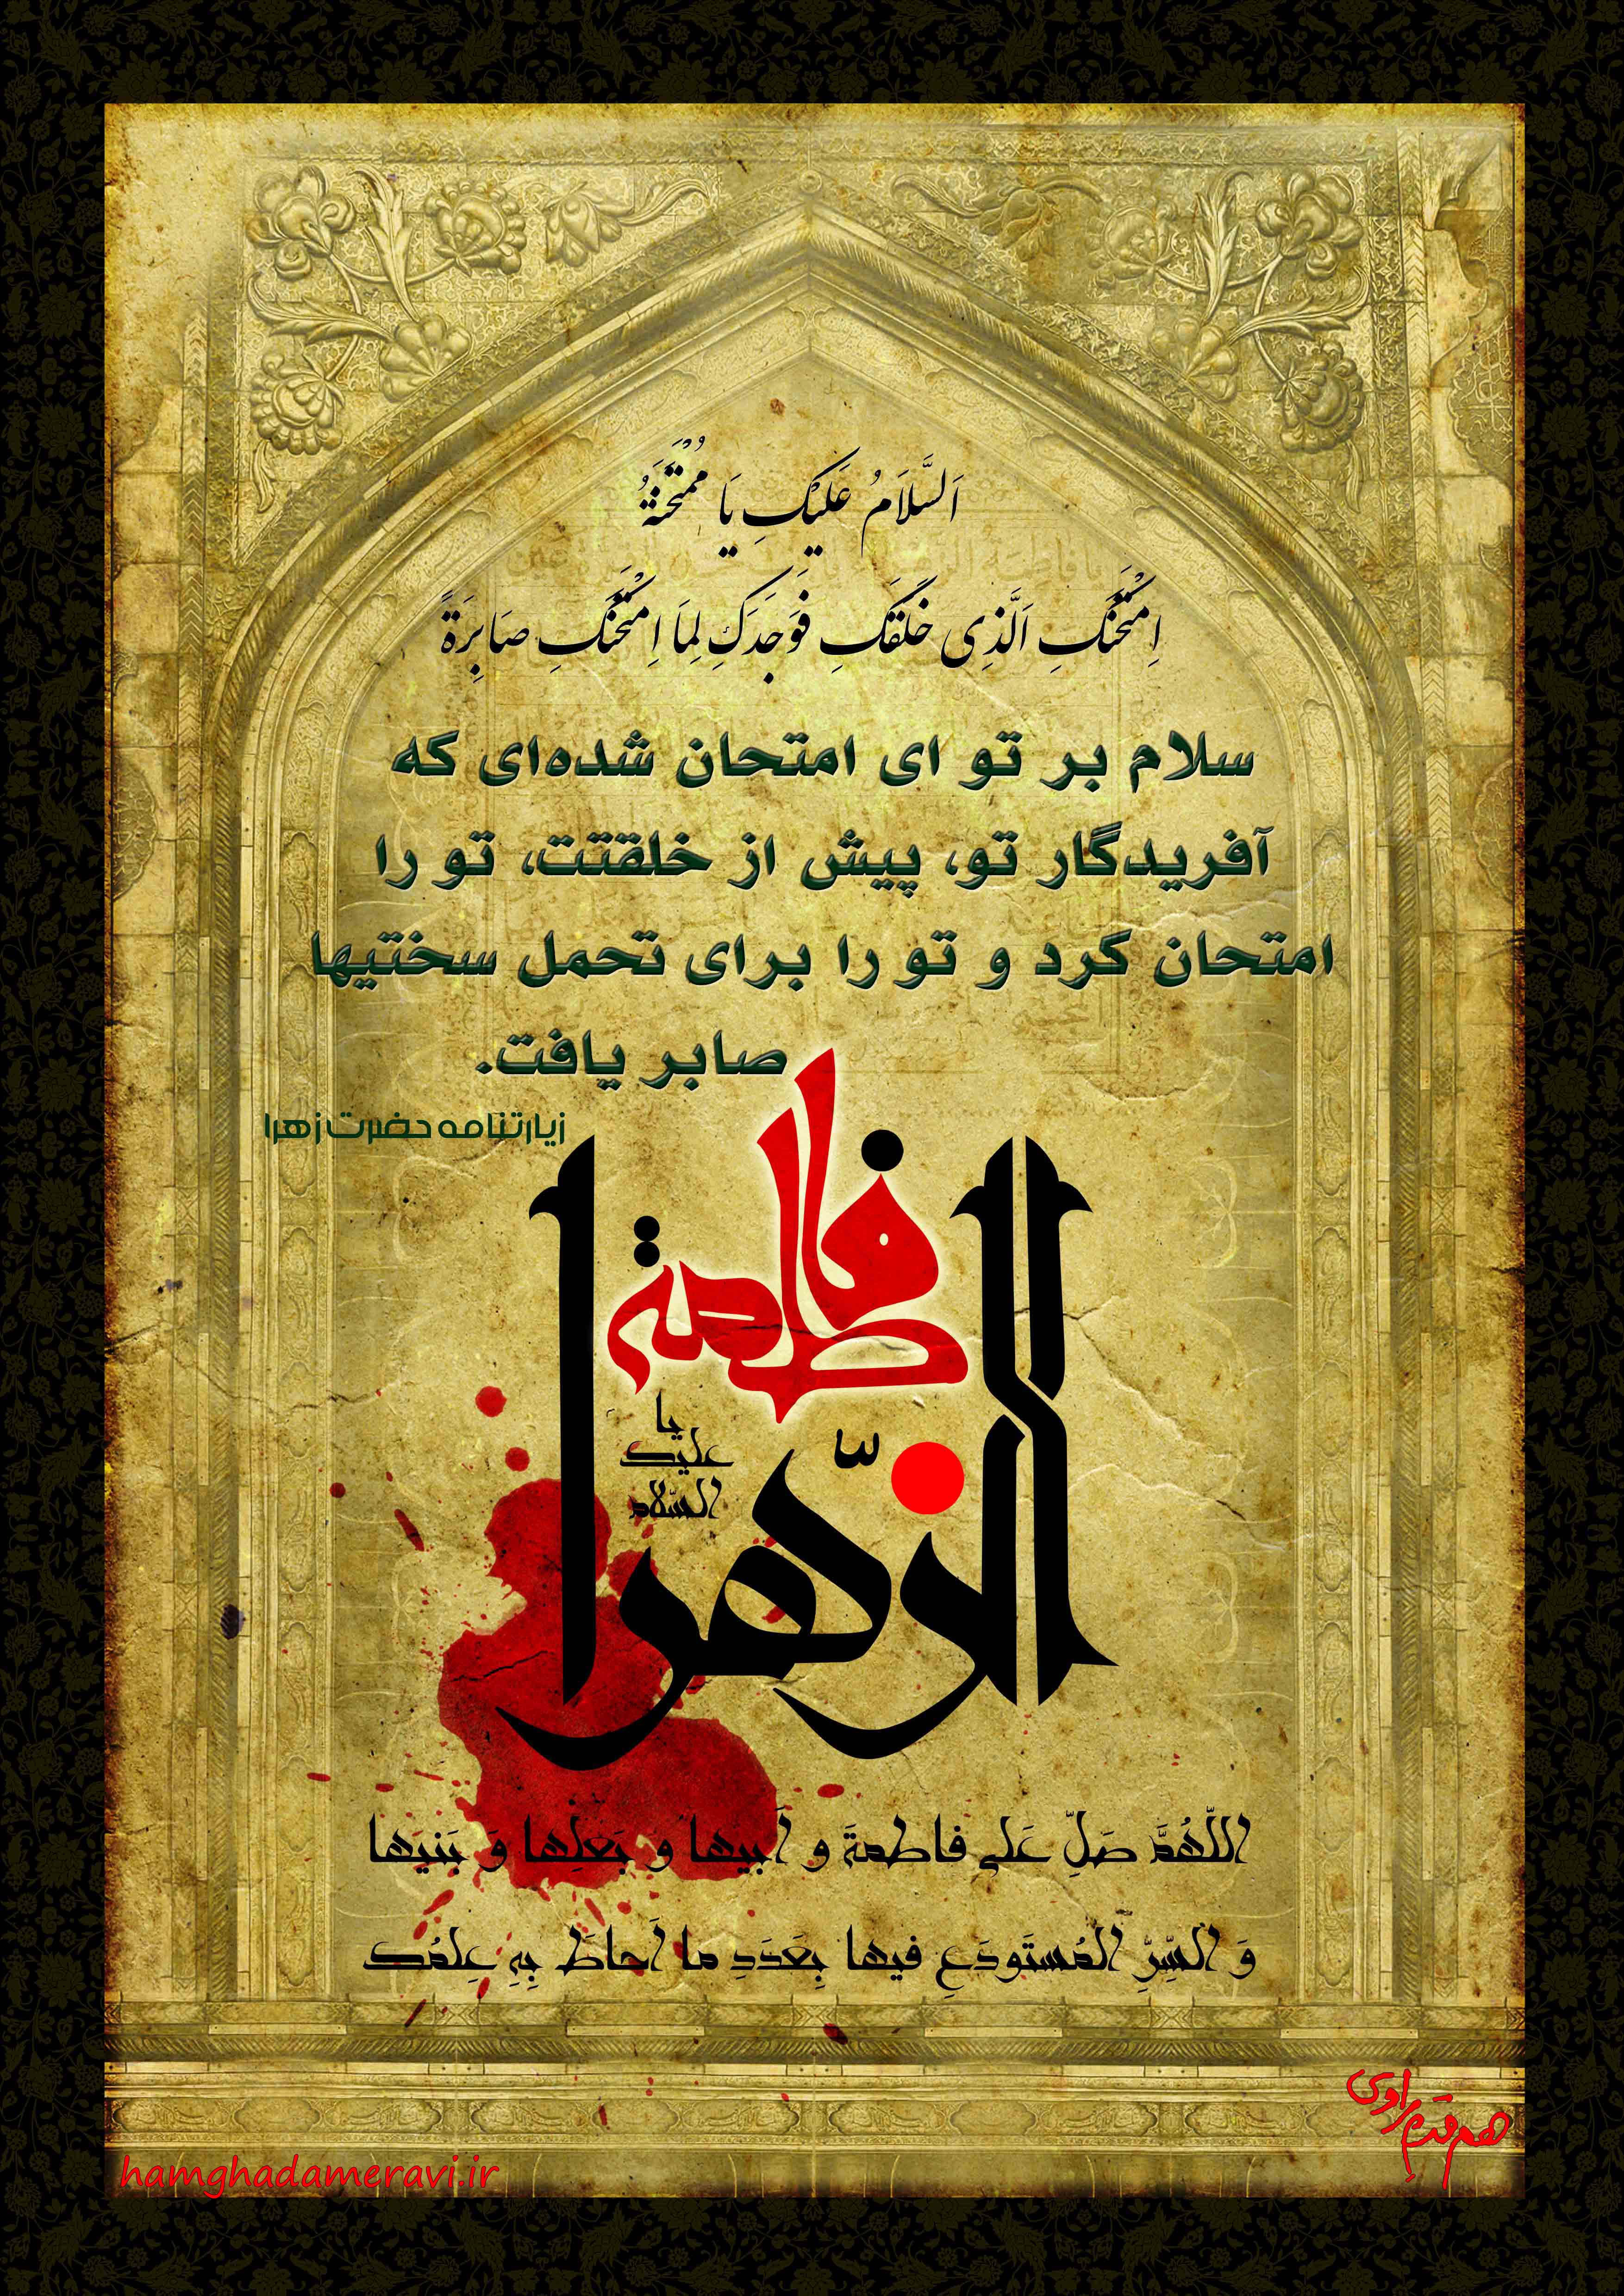 اَلسَّلَامُ عَلَيْكِ يَا مُمْتَحَنَةُ
اِمْتَحَنَكِ اَلَّذِى خَلَقَكِ فَوَجَدَكِ لِمَا اِمْتَحَنَكِ صَابِرَةً
سلام بر تو ای امتحان شده‌ای که
آفریدگار تو، پیش از خلقتت، تو را
امتحان کرد و تو را برای تحمل سختیها
صابر یافت.
زیارتنامه حضرت زهرا
فاطمة
الزّهرا
السّلام
عليك
يا
اللّهُمَّ صَلِّ عَلی فاطمةَ و اَبیها و بَعْلِها وَ بَنیها
وَ السِّرِّ المُستَودَعِ فیها بِعَدَدِ ما اَحاطَ بِهِ عِلمُک
هم قدم راوی
hamghadameravi.ir